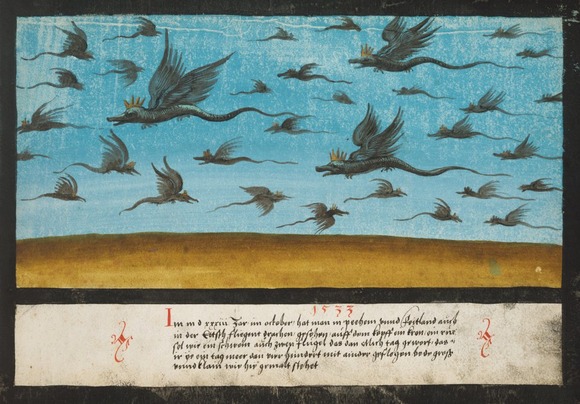 1533
Im m d xxxiii Jar im october hat man in pechem vnnd Foitland auch
in der fliegent drachen gesehen auff dem kopff ein kron ein rüs
sel wie ein schwein auch zwen flügel das dan etlich tag gewert das
ir ein tag meer dan vier hundert mit ainder geflogen bede groß
vnnd klain wie hie gemalt stehet